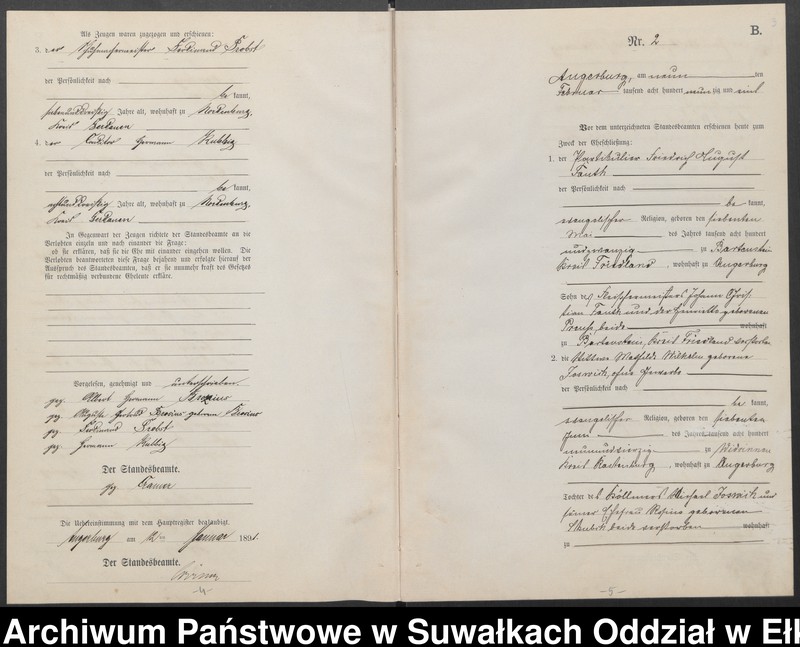 Als Zeugen waren zugezogen und erschienen:
3. der Ferdinand Probst
der Persönlichkeit nach
be kannt,
siebenunddreißig Jahre alt, wohnhaft zu Nordenburg,
Kreis Gerdauen
4. der Conditor Hermann
der Persönlichkeit nach
be kannt,
achtunddreißig Jahre alt, wohnhaft zu Nordenburg,
Kreis Gerdauen
In Gegenwart der Zeugen richtete der Standesbeamte an die
Verlobten einzeln und nach einander die Frage:
ob sie erklären, daß sie die Ehe mit einander eingehen wollen. Die
Verlobten beantworteten diese Frage bejahend und erfolgte hierauf der
Ausspruch des Standesbeamten, daß er sie nunmehr kraft des Gesetzes
für rechtmäßig verbundene Eheleute erkläre.
Vorgelesen, genehmigt und unterschrieben
gez. Albert Hermann
gez. geborene
gez. Ferdinand Probst
gez. Hermann
Der Standesbeamte.
gez.
Die Uebereinstimmung mit dem Hauptregister beglaubigt.
Angerburg am Januar 1891.
Der Standesbeamte.
-4-
B.
Nr. 2
Angerburg, am neun ten
Februar tausend acht hundert neun zig und eins
Vor dem unterzeichneten Standesbeamten erschienen heute zum
Zweck der Eheschließung:
1. der Friedrich August
Fauth
der Persönlichkeit nach
be kannt,
evangelischer Religion, geboren den siebenten
Mai des Jahres tausend acht hundert
undzwanzig zu Bartenstein
Kreis Friedland, wohnhaft zu Angerburg
Sohn des Johann Chris-
tian Fauth und der Henriette geborenen
Preuß, beide wohnhaft
zu Bartenstein, Kreis Friedland verstorben
2. die Wittwe Mathilde geborene
Joswich, ohne Gewerbe
der Persönlichkeit nach
be kannt,
evangelischer Religion, geboren den siebenten
Juni des Jahres tausend acht hundert
neunundvierzig zu
Kreis Rastenburg, wohnhaft zu Angerburg
Tochter des Köllmers Michael Joswich und
seiner Ehefrau Regine geborenen
beide verstorben wohnhaft
zu
-5-
Archiwum Państwowe w Suwałkach Oddział w Ełk